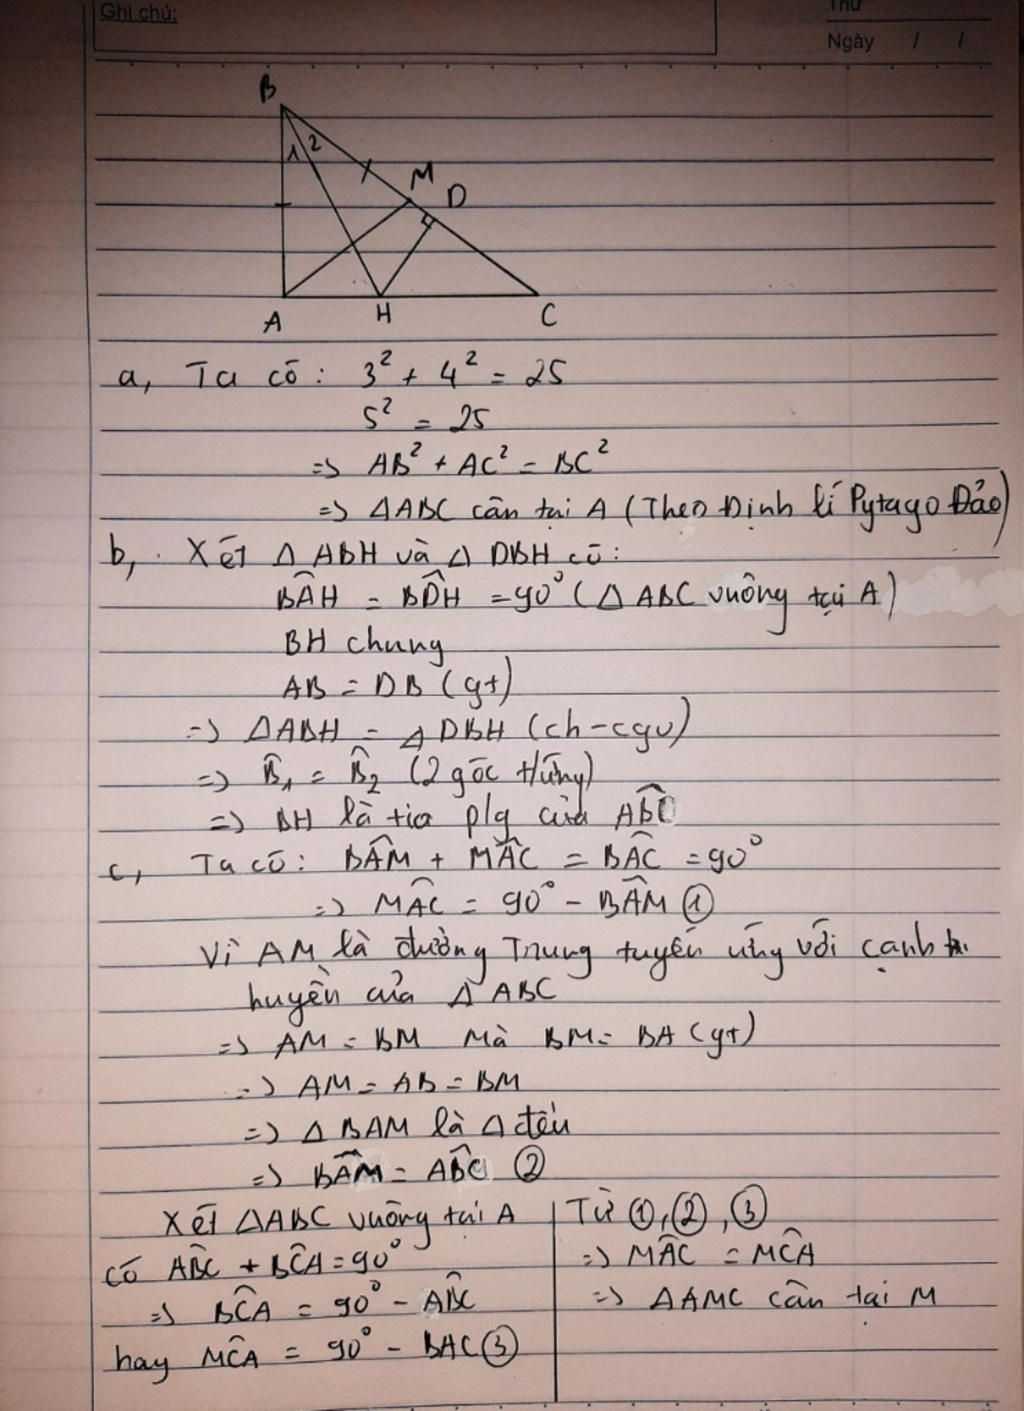 Ghi chú:
Thứ
Ngày / /
B
1 2
M
D
A H C
a, Ta có: 3² + 4² = 25
5² = 25
=> AB² + AC² = BC²
=> ΔABC cân tại A (Theo Định lí Pytago Đảo)
b, Xét Δ ABH và Δ DBH có:
BÂH = BD̂H = 90° (Δ ABC vuông tại A)
BH chung
AB = DB (gt)
=> ΔABH = ΔDBH (ch-cgv)
=> B̂₁ = B̂₂ (2 góc t/ứng)
=> BH là tia p/g của AB̂C
c, Ta có: BÂM + MÂC = BÂC = 90°
=> MÂC = 90° - BÂM ①
Vì AM là đường Trung tuyến ứng với cạnh
huyền của Δ ABC
=> AM = BM Mà BM = BA (gt)
=> AM = AB = BM
=> Δ BAM là Δ đều
=> BÂM = AB̂C ②
Xét ΔABC vuông tại A
có AB̂C + BĈA = 90°
=> BĈA = 90° - AB̂C
hay MĈA = 90° - BAC ③
Từ ①, ②, ③
=> MÂC = MĈA
=> ΔAMC cân tại M